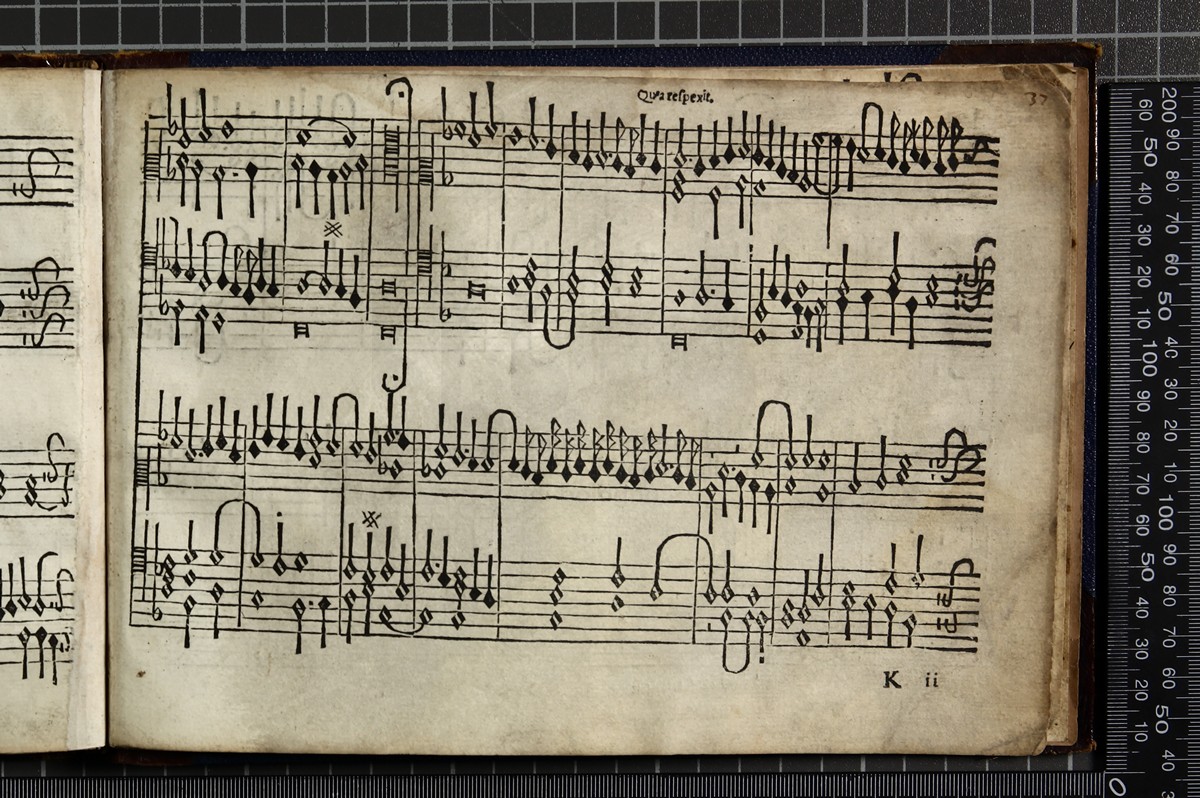 Quia respexit.
37
K ii
200
90
80
70
60
50
40
30
20
10
100
90
80
70
60
50
40
30
20
10
100
90
80
70
60
50
40
30
20
10
0
60
50
40
30
20
10
50
40